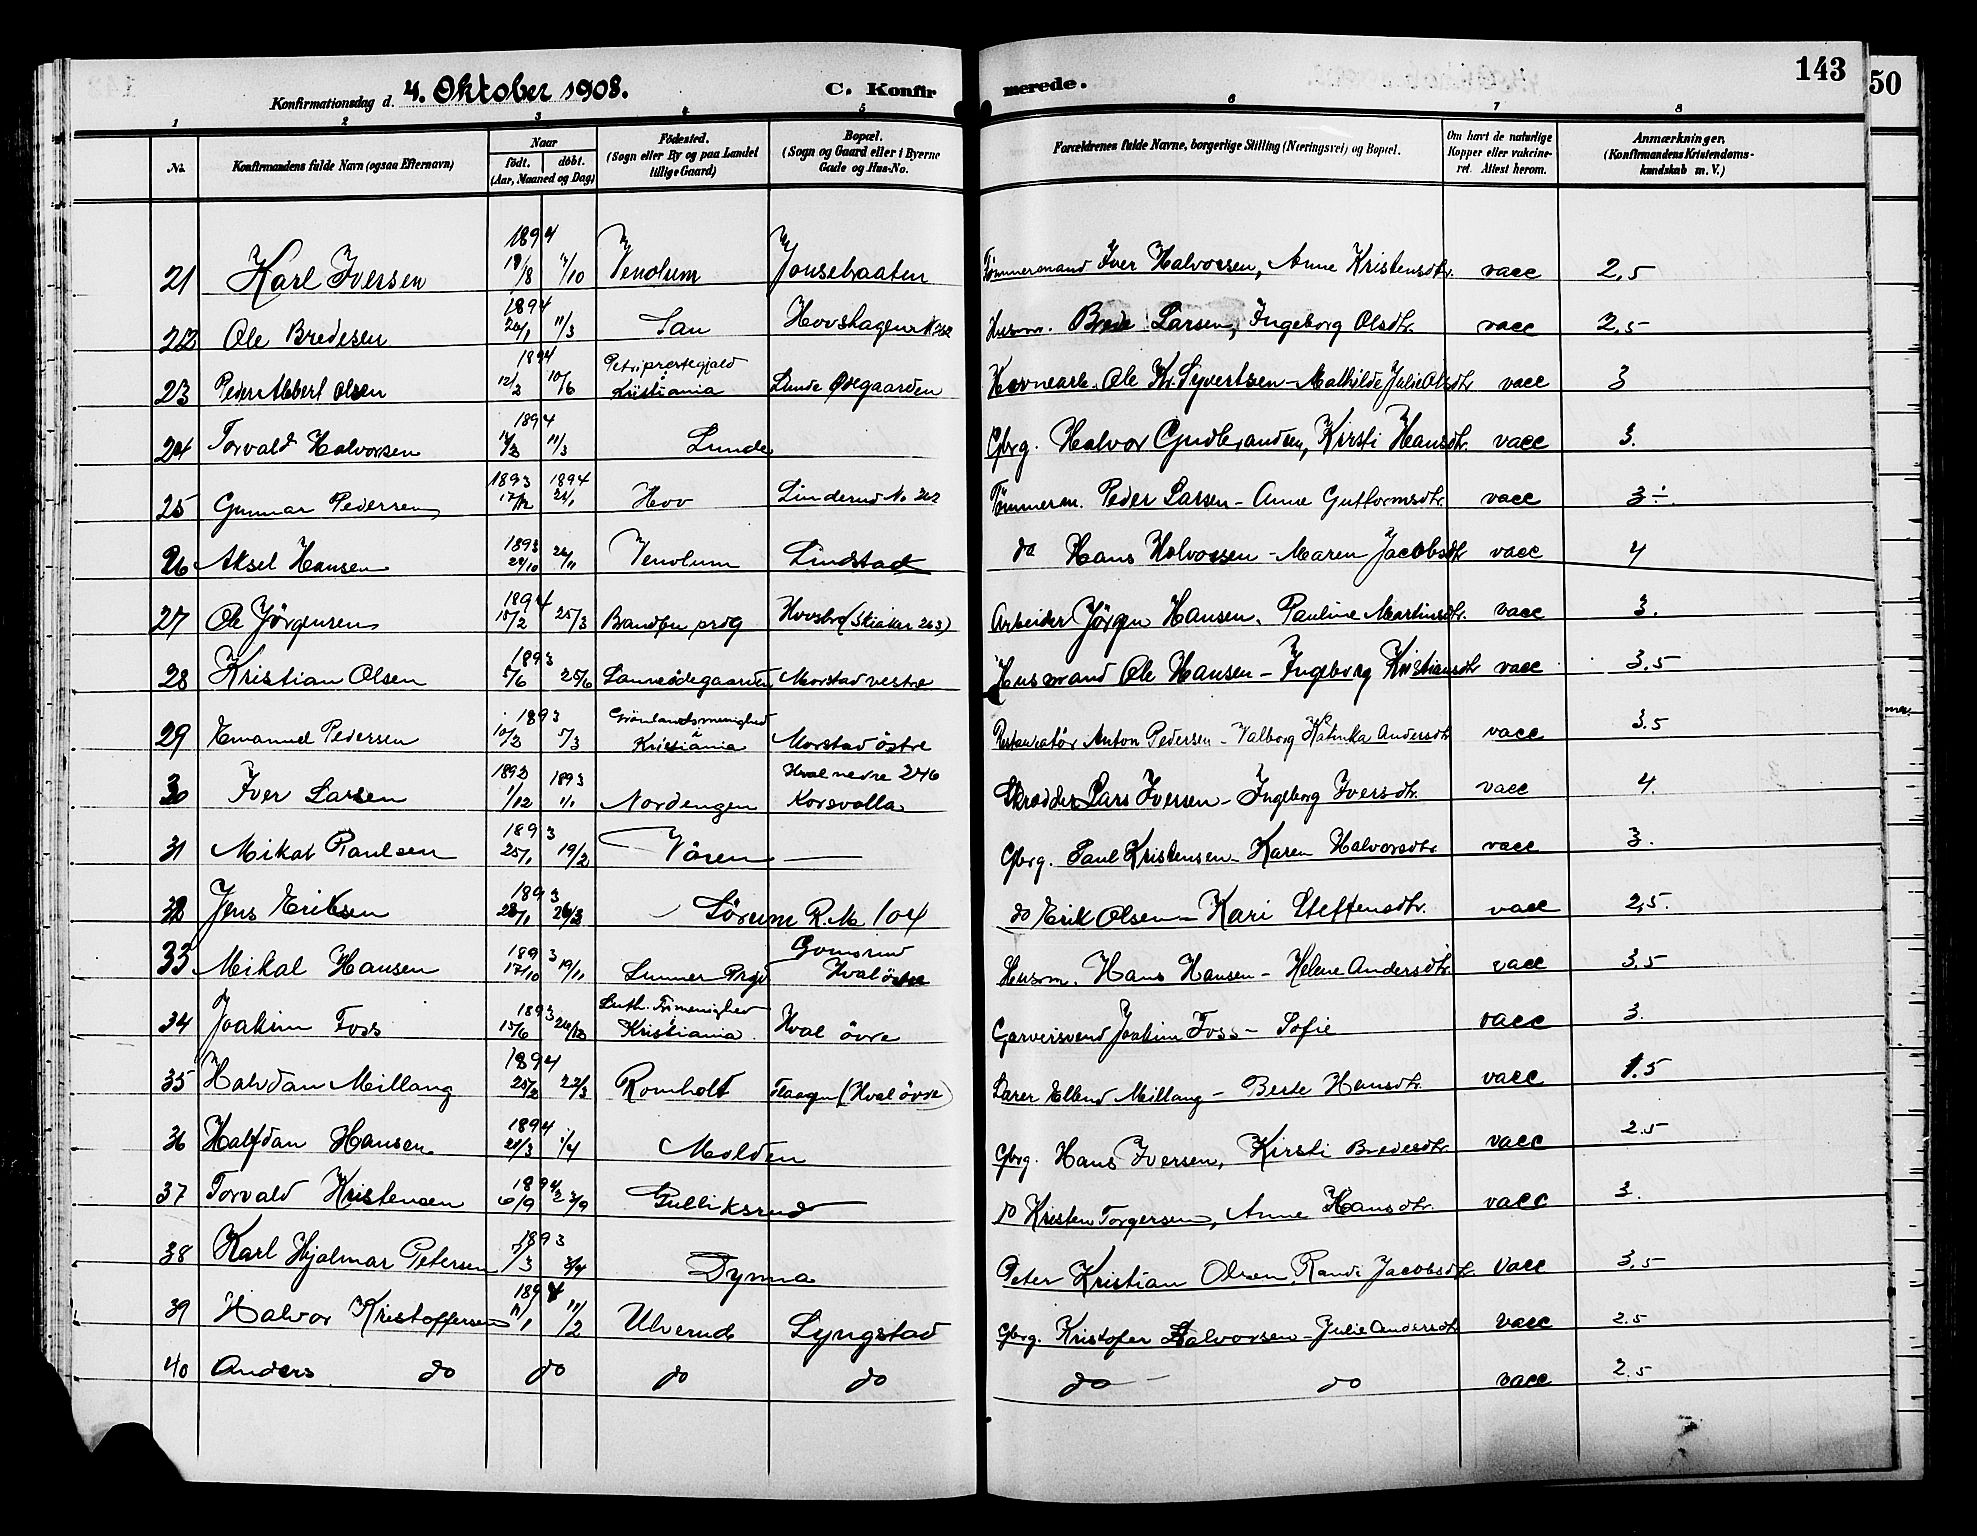 143
50
Konfirmationsdag d. 4. Oktober 1908. C. Konfirmerede.
1 2 3 4 5 6 7 8
No. Konfirmandens fulde Navn (ogsaa Efternavn) Naar født. døbt. (Aar, Maaned og Dag) Fødested. (Sogn eller By og paa Landet tillige Gaard) Bopæl. (Sogn og Gaard eller i Byerne Gade og Hus-No. Forældrenes fulde Navne, borgerlige Stilling (Næringsvei) og Bopæl. Om havt de naturlige Kopper eller vakcineret. Attest herom. Anmærkninger. (Konfirmandens Kristendomskundskab m. V.)
21 Karl Iversen 1894 19/8 7/10 Venolum Tømmermand Iver Halvorsen, Anne Kristensdtr. vacc 2,5
22 Ole Bredesen 1894 20/1 11/3 Lan Hovshagen Husm. Brede Larsen, Ingeborg Olsdtr. vacc 2,5
23 Peder Albert Olsen 1894 12/2 10/6 Petri prestegjeld Kristiania Lunde Ødegaarden Ole Kr. Syvertsen - Mathilde Julie Olsdtr vacc 3
24 Torvald Halvorsen 1894 11/3 Lunde Gbrg. Halvor Gudbrandsen, Kirsti Hansdtr. vacc 3.
25 Gunnar Pedersen 1893 17/12 1894 21/1 Hov Linderud No 262 Tømmerm. Peder Larsen - Anne Guttormsdtr. vacc 3÷
26 Aksel Hansen 1893 24/10 26/11 Venolum Lindstad do Hans Halvorsen - Maren Jacobsdtr vacc 4
27 Ole Jörgensen 1894 15/2 25/3 Brandbu prgj Hovsbro (Skiaker 263) Arbeider Jörgen Hansen. Pauline Martinsdtr. vacc 3.
28 Kristian Olsen 1893 5/6 25/6 Lanneödegaarden Morstad vestre Husmand Ole Hansen - Ingeborg Kristiansdtr vacc 3.5
29 Emanuel Pedersen 1893 10/2 5/3 Grönlandsmenighed Kristiania Morstad östre Restauratör Anton Pedersen - Valborg Katinka Andersdtr vacc 3.5
30 Iver Larsen 1892 1/12 1893 1/1 Nordengen Hval nedre 246 Korsvolla Skrædder Lars Iversen - Ingeborg Iversdtr. vacc 4.
31 Mikal Paulsen 1893 25/1 19/2 Vören Gbrg. Paul Kristensen - Karen Halvorsdtr vacc 3.
32 Jens Eriksen 1893 28/1 26/3 Sörum R. No 104 do Erik Olsen - Kari Steffensdtr. vacc 2,5.
33 Mikal Hansen 1893 17/10 19/11 Lunner Prgj Gomsrud Hval östre Husm. Hans Hansen - Helene Andersdtr. vacc 3.5
34 Joakim Foss 1893 15/6 26/12 Luth. Frimenighed Kristiania Hval övre Garversvend Joakim Foss - Sofie vacc 3.
35 Halvdan Millang 1894 25/2 22/3 Romholt Flaagen (Hval övre) Lærer Ellend Millang - Berte Hansdtr. vacc 1.5
36 Halfdan Hansen 1894 21/3 1/4 Molden Gbrg. Hans Iversen, Kirsti Bredesdtr. vacc 2.5
37 Torvald Kristensen 1894 6/9 23/9 Gulliksrud do Kristen Torgersen, Anne Hansdtr. vacc 3.
38 Karl Hjalmar Petersen 1893 5/3 3/4 Dynna Peter Kristian Olsen, Randi Jacobsdtr. vacc 3.5
39 Halvor Kristoffersen 1894 11/1 11/2 Ulverud Lyngstad Gbrg. Kristofer Halvorsen - Julie Andersdtr vacc 2.5
40 Anders do do do do do do vacc 2.5